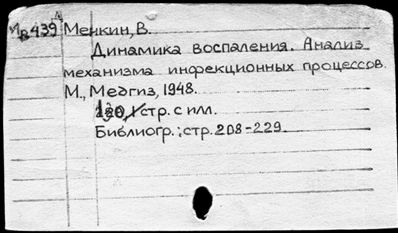 439 Менкин, В.
Динамика воспаления. Анализ
механизма инфекционных процессов.
М., Медгиз, 1948.
стр. с илл.
Библиогр.: стр. 208-229.